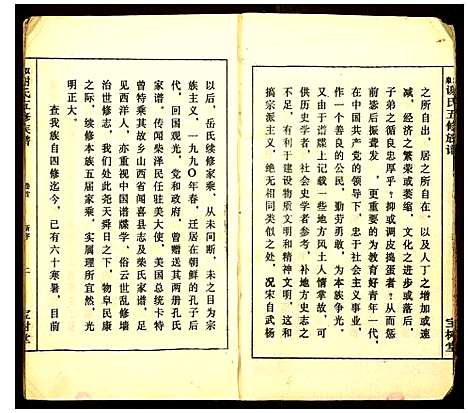 谢氏五修族谱
宝树堂
之所自出，居之所自在，以及人丁之增减
，经济之繁荣或萎缩，文化之进步或落后，
子弟之循良忠厚乎？抑或调皮捣蛋者？已往
前毖后振聋发，更重要的为教育好青年一代，
在中国共产党的领导下，忠于社会主义事业，
作一个善良的公民，勤劳勇敢，为本族争光。
又由于谱牒上记载一些地方风土人情掌故，可
供历史学者，社会史学者参考，补地方史志之
不足，有利于建设物质文明和精神文明，这和
搞宗派主义，绝无相同类似之处，况宋自武杨
以后，岳氏续修家乘，从未间断，未之目为宗
族主义，一九九〇年春，迁居在朝鲜的孔子后
代，回国观光，党和政府，曾赠送其两册孔氏
家谱。传闻柴泽民任驻美大使，美国总统卡特
曾特乘其故乡山西省闻喜县志及柴氏家谱，足
见西洋人，亦重视中国谱牒学，俗云世乱修墙
治世修志，我们处此尧天舜日之下，物阜民康
之际，续修本族五届家乘，实属理所当然，光
明正大。
查我族自四修迄今，已有六十寒暑，目前
谢氏五修族谱
卷首
二
宝树堂